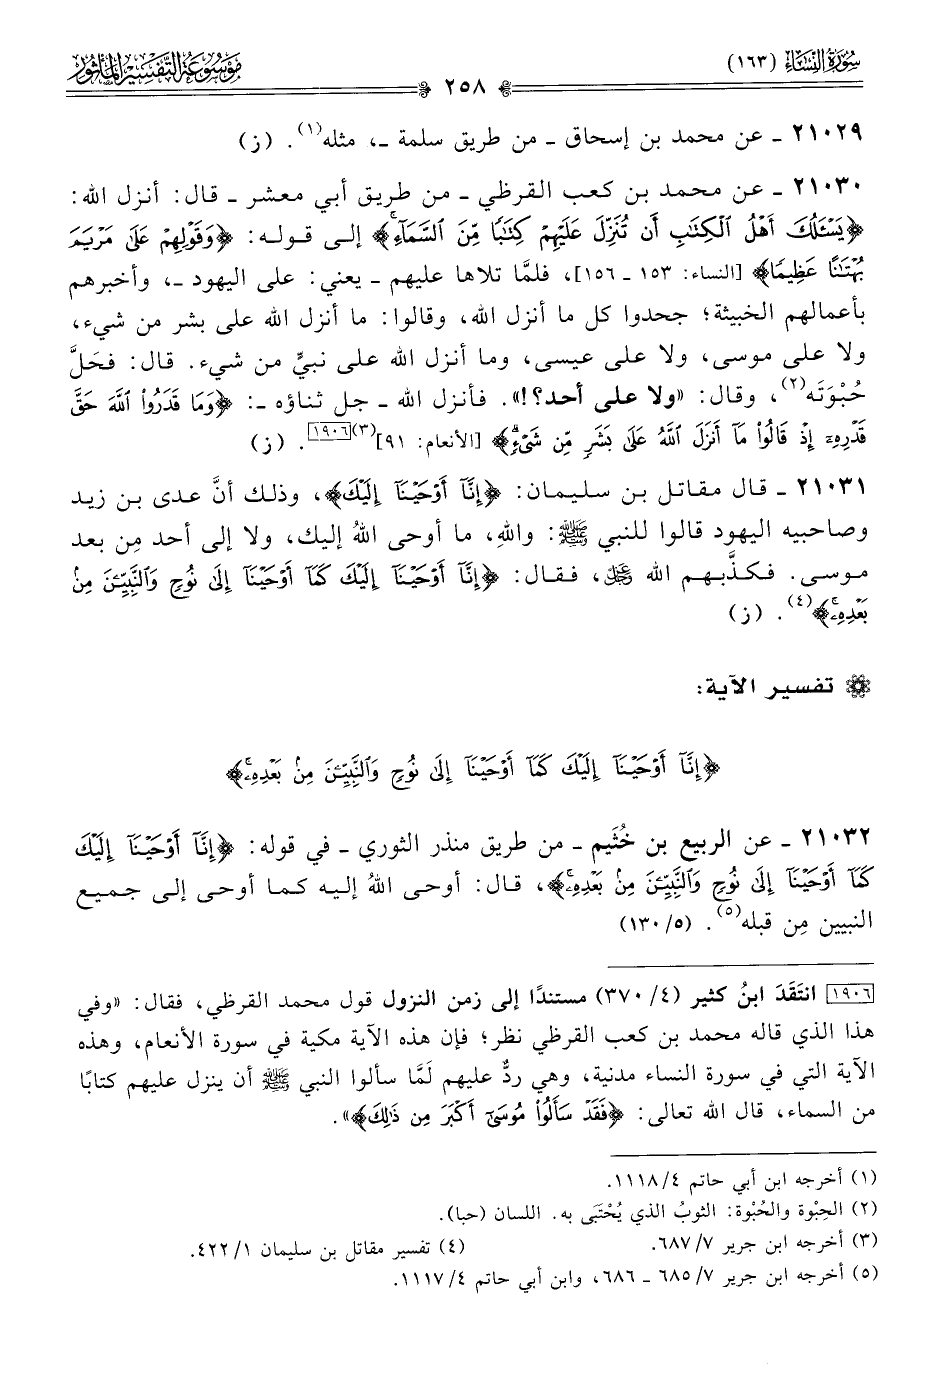 سُورَةُ النِّسَاءِ (١٦٣)
٢٥٨
مَوْسُوعَةُ التَّفْسِيرِ المَأْثُور
٢١٠٢٩ ـ عن محمد بن إسحاق ـ من طريق سلمة ـ، مثله(١). (ز)
٢١٠٣٠ ـ عن محمد بن كعب القرظي ـ من طريق أبي معشر ـ قال: أنزل الله:
﴿يَسْـَٔلُكَ أَهْلُ ٱلْكِتَٰبِ أَن تُنَزِّلَ عَلَيْهِمْ كِتَٰبًا مِّنَ ٱلسَّمَآءِۚ﴾ إلى قوله: ﴿وَقَوْلِهِمْ عَلَىٰ مَرْيَمَ
بُهْتَٰنًا عَظِيمًا﴾ [النساء: ١٥٣ ـ ١٥٦]، فلمَّا تلاها عليهم ـ يعني: على اليهود ـ، وأخبرهم
بأعمالهم الخبيثة؛ جحدوا كل ما أنزل الله، وقالوا: ما أنزل الله على بشر من شيء،
ولا على موسى، ولا على عيسى، وما أنزل الله على نبيٍّ من شيء. قال: فحَلَّ
حُبْوَتَه(٢)، وقال: «ولا على أحد؟!». فأنزل الله ـ جل ثناؤه ـ: ﴿وَمَا قَدَرُوا۟ ٱللَّهَ حَقَّ
قَدْرِهِۦٓ إِذْ قَالُوا۟ مَآ أَنزَلَ ٱللَّهُ عَلَىٰ بَشَرٍ مِّن شَىْءٍۗ﴾ [الأنعام: ٩١](٣)[١٩٠٦]. (ز)
٢١٠٣١ ـ قال مقاتل بن سليمان: ﴿إِنَّآ أَوْحَيْنَآ إِلَيْكَ﴾، وذلك أنَّ عدى بن زيد
وصاحبيه اليهود قالوا للنبي ﷺ: واللهِ، ما أوحى اللهُ إليك، ولا إلى أحد مِن بعد
موسى. فكذَّبهم الله ﷿، فقال: ﴿إِنَّآ أَوْحَيْنَآ إِلَيْكَ كَمَآ أَوْحَيْنَآ إِلَىٰ نُوحٍ وَٱلنَّبِيِّـۧنَ مِنۢ
بَعْدِهِۦۚ﴾(٤). (ز)
تفسير الآية:
﴿إِنَّآ أَوْحَيْنَآ إِلَيْكَ كَمَآ أَوْحَيْنَآ إِلَىٰ نُوحٍ وَٱلنَّبِيِّـۧنَ مِنۢ بَعْدِهِۦۚ﴾
٢١٠٣٢ ـ عن الربيع بن خُثَيم ـ من طريق منذر الثوري ـ في قوله: ﴿إِنَّآ أَوْحَيْنَآ إِلَيْكَ
كَمَآ أَوْحَيْنَآ إِلَىٰ نُوحٍ وَٱلنَّبِيِّـۧنَ مِنۢ بَعْدِهِۦۚ﴾، قال: أوحى اللهُ إليه كما أوحى إلى جميع
النبيين مِن قبله(٥). (٥/ ١٣٠)
[١٩٠٦] انتَقَدَ ابنُ كثير (٤/ ٣٧٠) مستندًا إلى زمن النزول قول محمد القرظي، فقال: «وفي
هذا الذي قاله محمد بن كعب القرظي نظر؛ فإن هذه الآية مكية في سورة الأنعام، وهذه
الآية التي في سورة النساء مدنية، وهي ردٌّ عليهم لَمَّا سألوا النبي ﷺ أن ينزل عليهم كتابًا
من السماء، قال الله تعالى: ﴿فَقَدْ سَأَلُوا۟ مُوسَىٰٓ أَكْبَرَ مِن ذَٰلِكَ﴾».
(١) أخرجه ابن أبي حاتم ٤/ ١١١٨.
(٢) الحِبْوة والحُبْوة: الثوبُ الذي يُحْتَبَى به. اللسان (حبا).
(٣) أخرجه ابن جرير ٧/ ٦٨٧. (٤) تفسير مقاتل بن سليمان ١/ ٤٢٢.
(٥) أخرجه ابن جرير ٧/ ٦٨٥ ـ ٦٨٦، وابن أبي حاتم ٤/ ١١١٧.